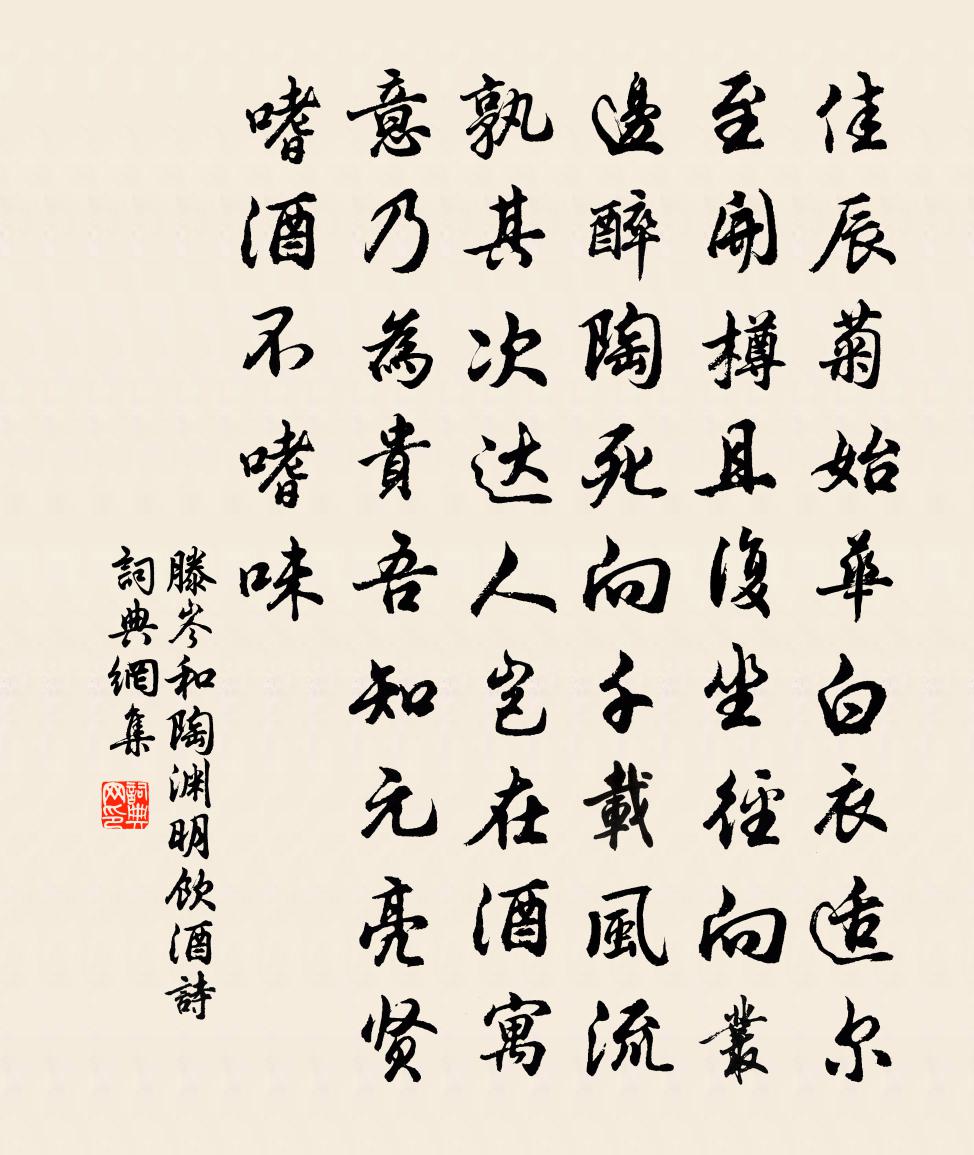 佳辰菊始華白衣适尔
至開樽且復坐徑向叢
邊醉陶死向千載風流
孰其次达人岂在酒寓
意乃為貴吾知元亮贤
嗜酒不嗜味
滕岑和陶渊明饮酒詩
詞典網集
詞典网印